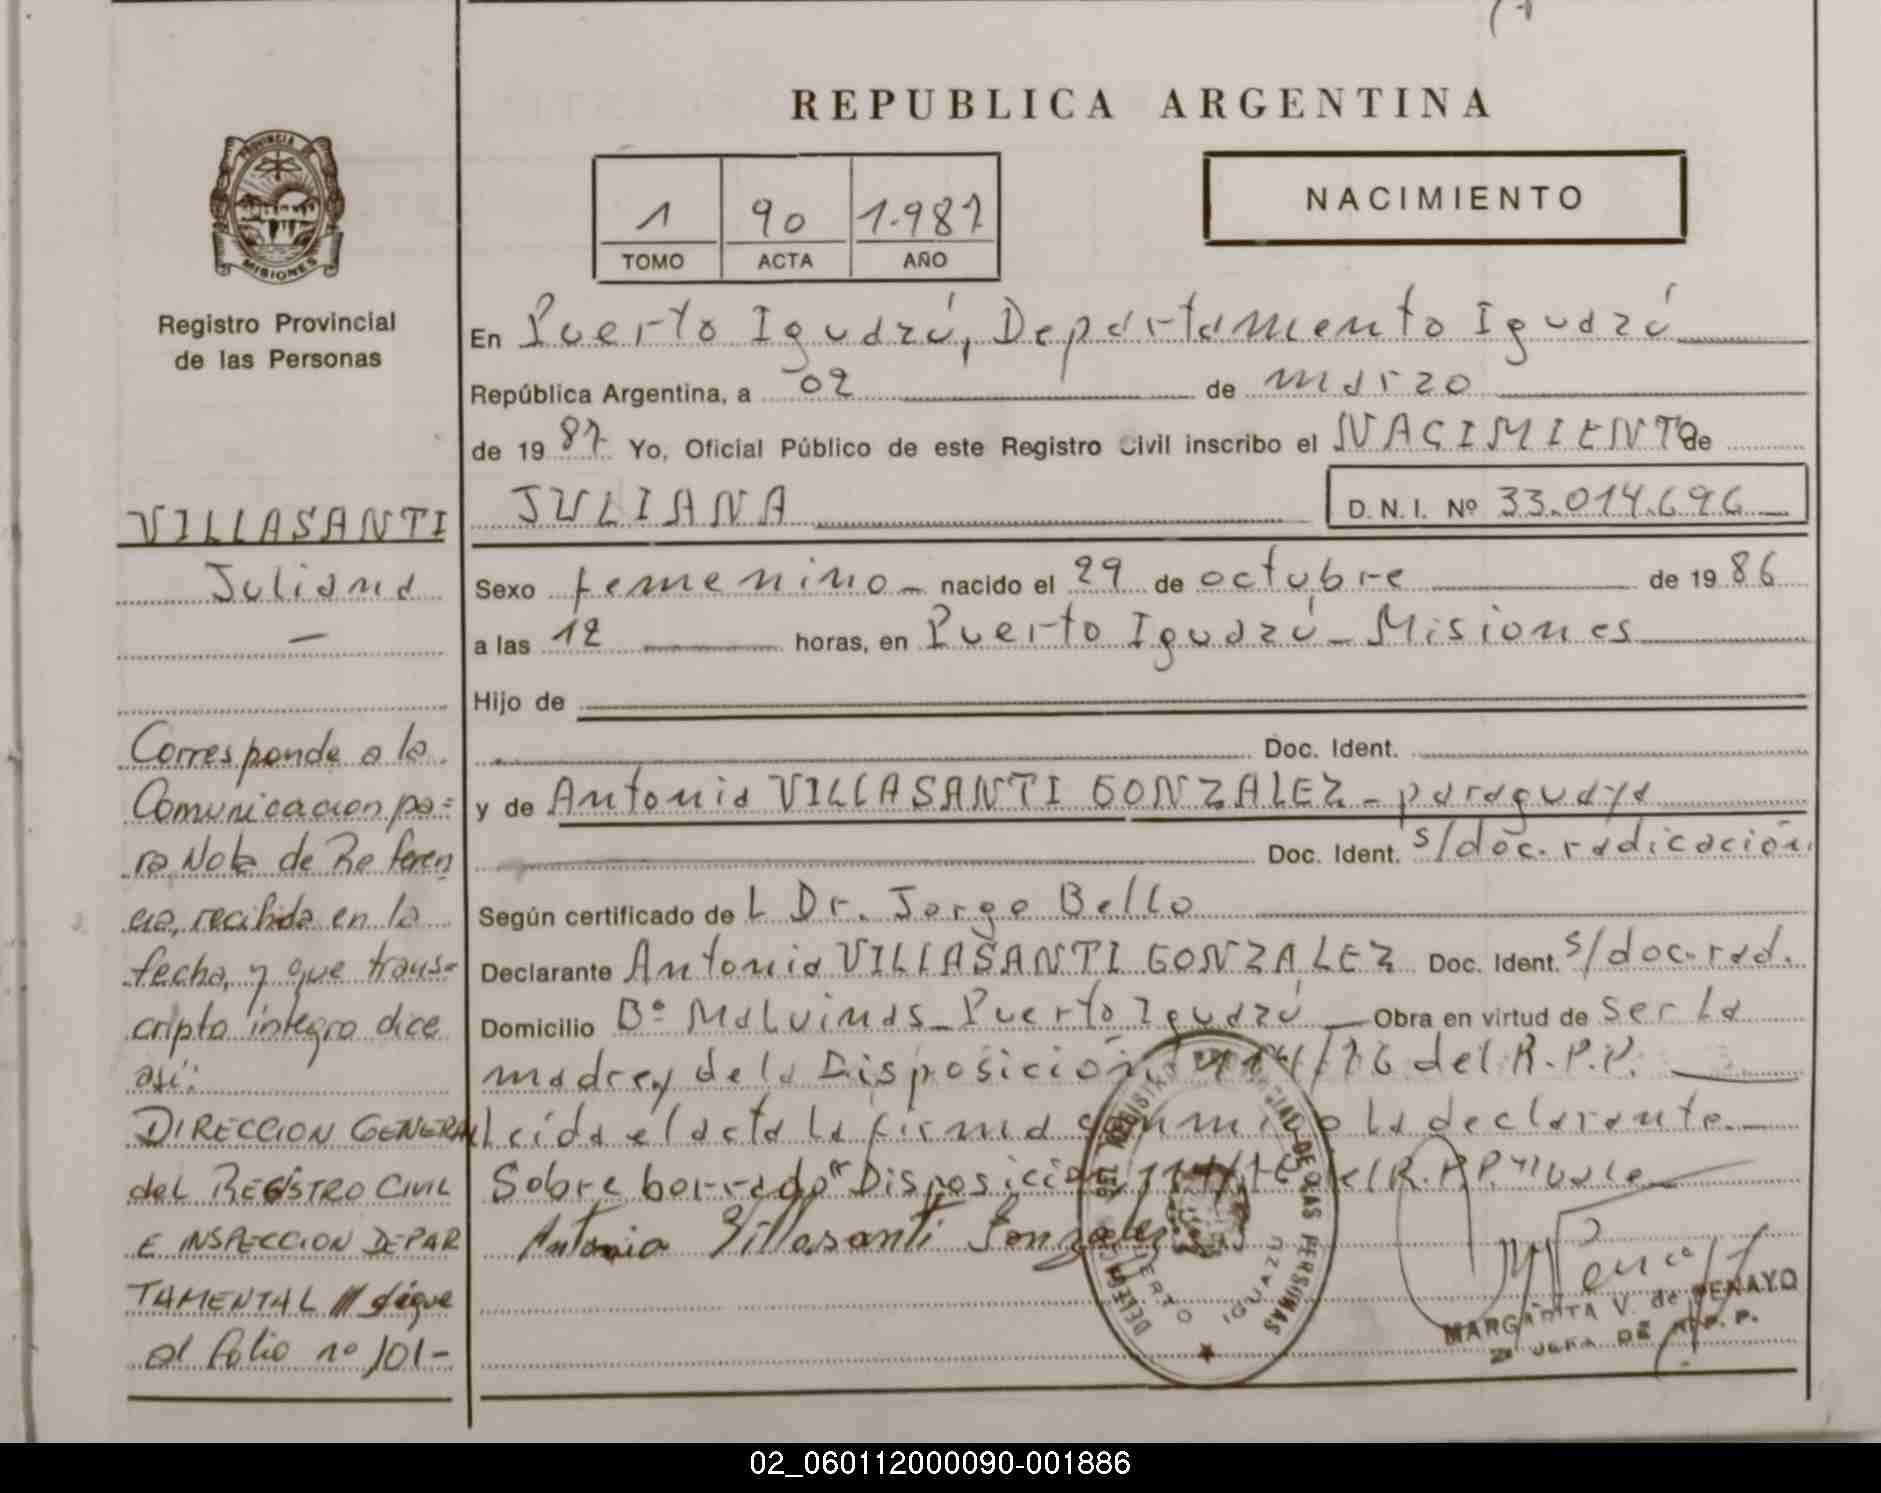 REPUBLICA ARGENTINA
PROVINCIA DE
MISIONES
Registro Provincial
de las Personas
1 90 1.987
TOMO ACTA AÑO
NACIMIENTO
En Puerto Iguazú, Departamento Iguazú
República Argentina, a 02 de marzo
de 19 87 Yo, Oficial Público de este Registro Civil inscribo el NACIMIENTO de
JULIANA D. N. I. Nº 33.014.696
Sexo femenino nacido el 29 de octubre de 19 86
a las 12 horas, en Puerto Iguazú - Misiones
Hijo de
Doc. Ident.
y de Antonia VILLASANTI GONZALEZ - paraguaya
Doc. Ident. s/doc. radicación
Según certificado de L Dr. Jorge Bello
Declarante Antonia VILLASANTI GONZALEZ Doc. Ident. s/doc. rad.
Domicilio Bº Malvinas - Puerto Iguazú Obra en virtud de ser la
madre y de la Disposición del R.P.P.
Leída el acta la firma la declarante.
Sobre borrado "Disposición del R.P.P." vale
Antonia Villasanti Gonzalez
MARGARITA V. de PENAYO
JEFA DE
PUERTO IGUAZU
VILLASANTI
Juliana
-
Corresponde a la
Comunicacion pa=
ra Nota de Referen
cia, recibida en la
fecha, y que trans-
cripto íntegro dice
así:
DIRECCION GENERAL
del REGISTRO CIVIL
E INSPECCION DEPAR
TAMENTAL /// sigue
al folio nº 101-
02_060112000090-001886